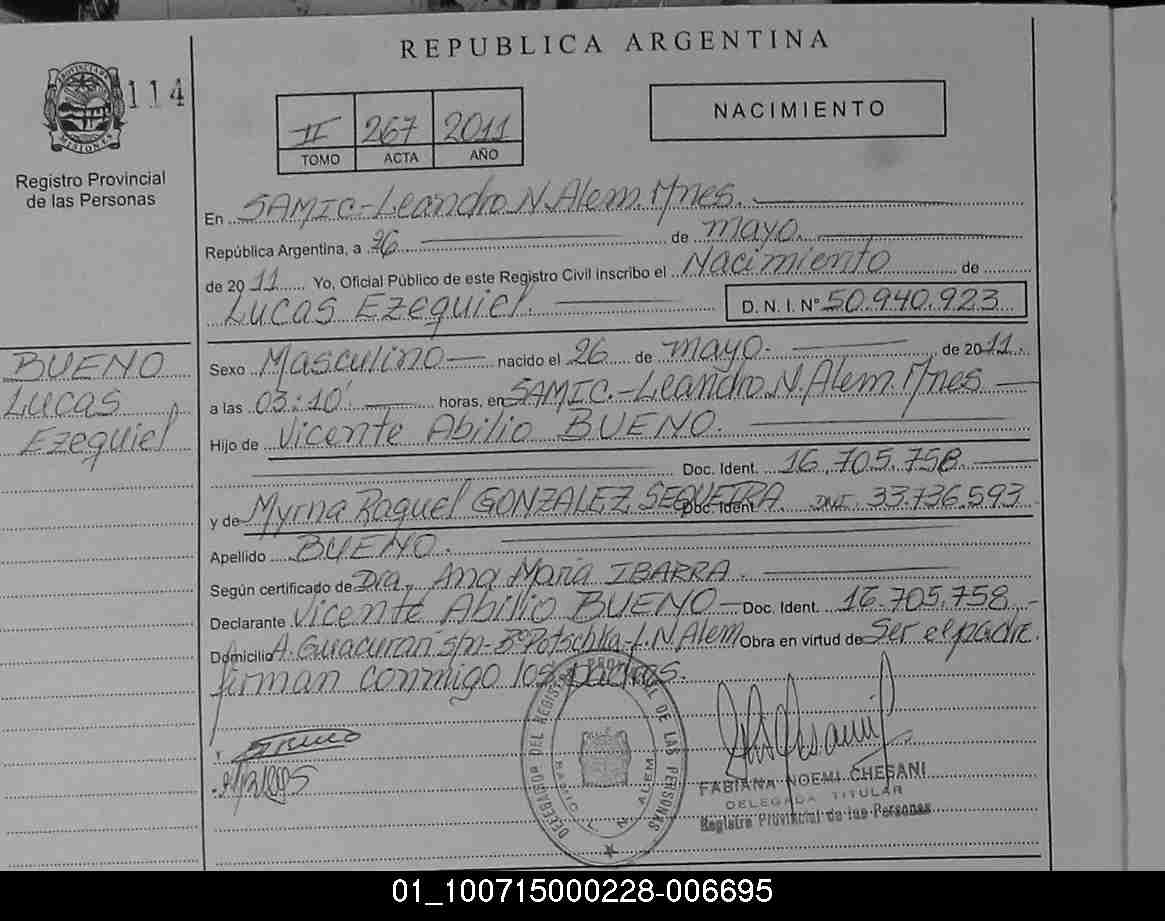 REPUBLICA ARGENTINA
PROVINCIA DE MISIONES
114
Registro Provincial
de las Personas
II 267 2011
TOMO ACTA AÑO
NACIMIENTO
En SAMIC.-Leandro N. Alem. Mnes.
República Argentina, a 26 de mayo.
de 2011 Yo, Oficial Público de este Registro Civil inscribo el Nacimiento de
Lucas Ezequiel. D. N. I. Nº 50.940.923
BUENO
Lucas
Ezequiel
Sexo Masculino nacido el 26 de mayo. de 2011.
a las 03:10' horas, en SAMIC.-Leandro N. Alem. Mnes
Hijo de Vicente Abilio BUENO.
Doc. Ident. 16.705.758.
y de Myrna Raquel GONZALEZ SEQUEIRA. Doc. Ident. DNI. 33.736.593
Apellido BUENO.
Según certificado de Dra. Ana María IBARRA.
Declarante Vicente Abilio BUENO Doc. Ident. 16.705.758.-
Domicilio A. Guacurarí s/n- Bº Potschka-L.N.Alem Obra en virtud de Ser el padre.
firman conmigo los padres.
BUENO
DELEGADO DEL REGISTRO PROVINCIAL DE LAS PERSONAS
SAMIC L. N. ALEM
FABIANA NOEMI CHESANI
DELEGADA TITULAR
Registro Provincial de las Personas
01_100715000228-006695